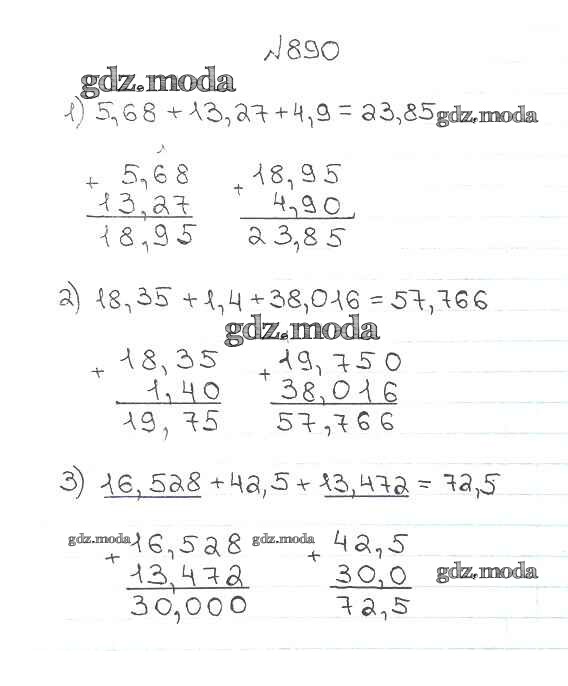 №890
gdz.moda
1) 5,68 + 13,27 + 4,9 = 23,85 gdz.moda
+ 5,68 + 18,95
13,27 4,90
18,95 23,85
2) 18,35 + 1,4 + 38,016 = 57,766
gdz.moda
+ 18,35 + 19,750
1,40 38,016
19,75 57,766
3) 16,528 + 42,5 + 13,472 = 72,5
gdz.moda + 16,528 gdz.moda + 42,5
13,472 30,0 gdz.moda
30,000 72,5